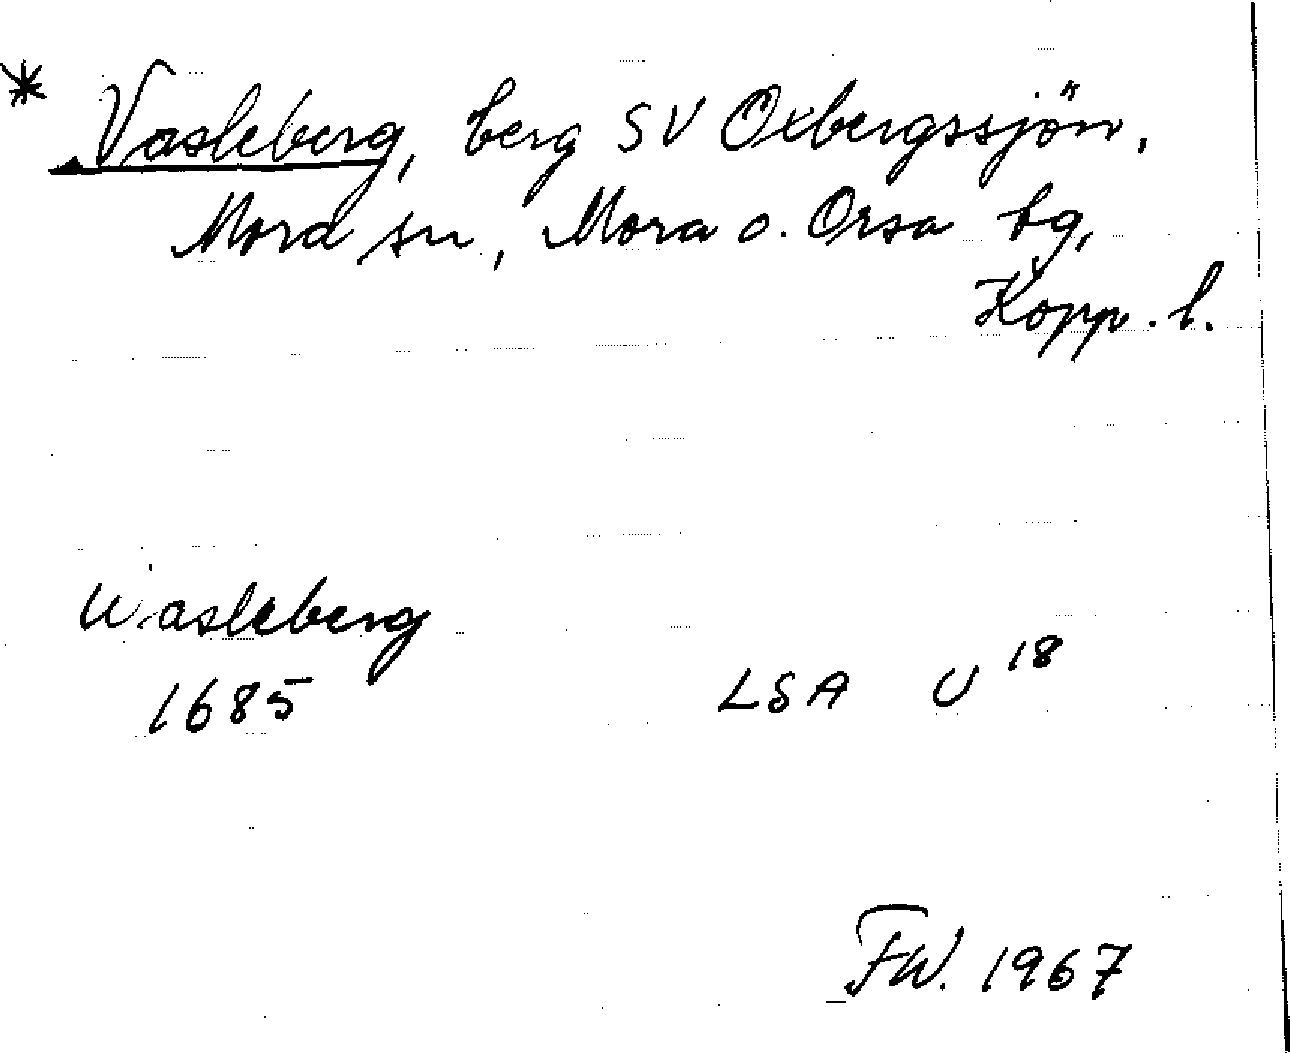 * Vasleberg, berg SV Oxbergssjön,
Mord sn, Mora o. Orsa tg,
Kopp. l.
Wasleberg
1685 LSA U 18
FW. 1967